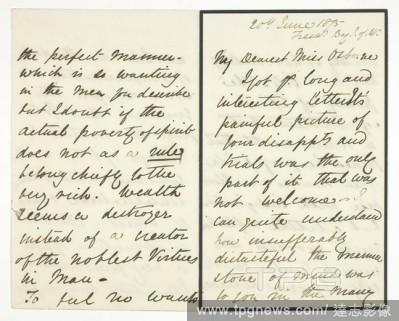 20th June 185
My Dearest Miss Osborne
I got yr long and
interesting letter. Its
painful picture of
your disappts and
trials was the only
part of it that was
not welcome.
can quite understand
how insufferably
distasteful the manner
& tone of mind was
to you in the many
the perfect manner-
which is so wanting
in the men you describe
but I doubt if the
actual poverty of spirit
does not as a rule
belong chiefly to the
very rich. Wealth
seems a destroyer
instead of a creator
of the noblest Virtues
in Man-
To feel no wants
www.tpgnews.com/達志影像